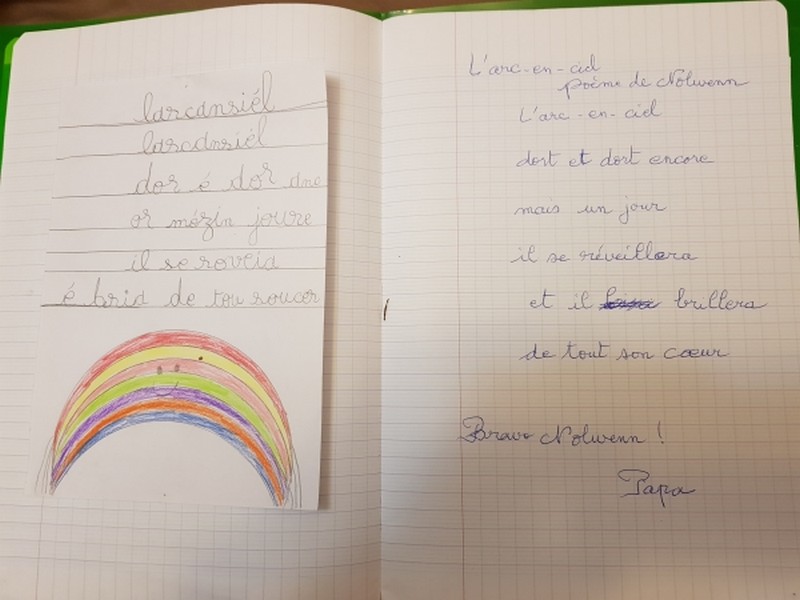 larcansiél
larcansiél
dor é dor anc
or mézin joure
il se roveia
é bria de tou soucer
L'arc-en-ciel
poème de Nolwenn
L'arc-en-ciel
dort et dort encore
mais un jour
il se réveillera
et il brillera
de tout son cœur
Bravo Nolwenn !
Papa